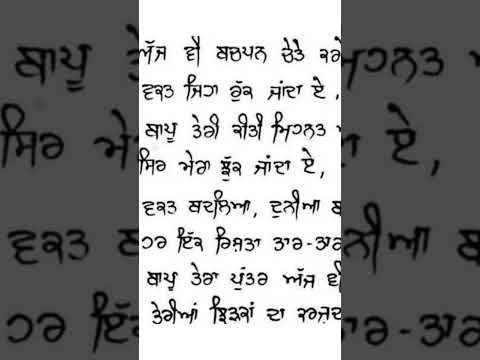 ਅੱਜ ਵੀ ਬਚਪਨ ਚੇਤੇ ਕਰੇ
ਵਕਤ ਜਿਹਾ ਰੁੱਕ ਜਾਂਦਾ ਏ,
ਬਾਪੂ ਤੇਰੀ ਕੀਤੀ ਮਿਹਨਤ
ਸਿਰ ਮੇਰਾ ਝੁੱਕ ਜਾਂਦਾ ਏ,
ਵਕਤ ਬਦਲਿਆ, ਦੁਨੀਆ
ਹਰ ਇੱਕ ਰਿਸ਼ਤਾ ਤਾਰ-ਤਾਰ
ਬਾਪੂ ਤੇਰਾ ਪੁੱਤਰ ਅੱਜ ਵੀ
ਤੇਰੀਆਂ ਝਿੜਕਾਂ ਦਾ ਕਰਜ਼ਦਾ